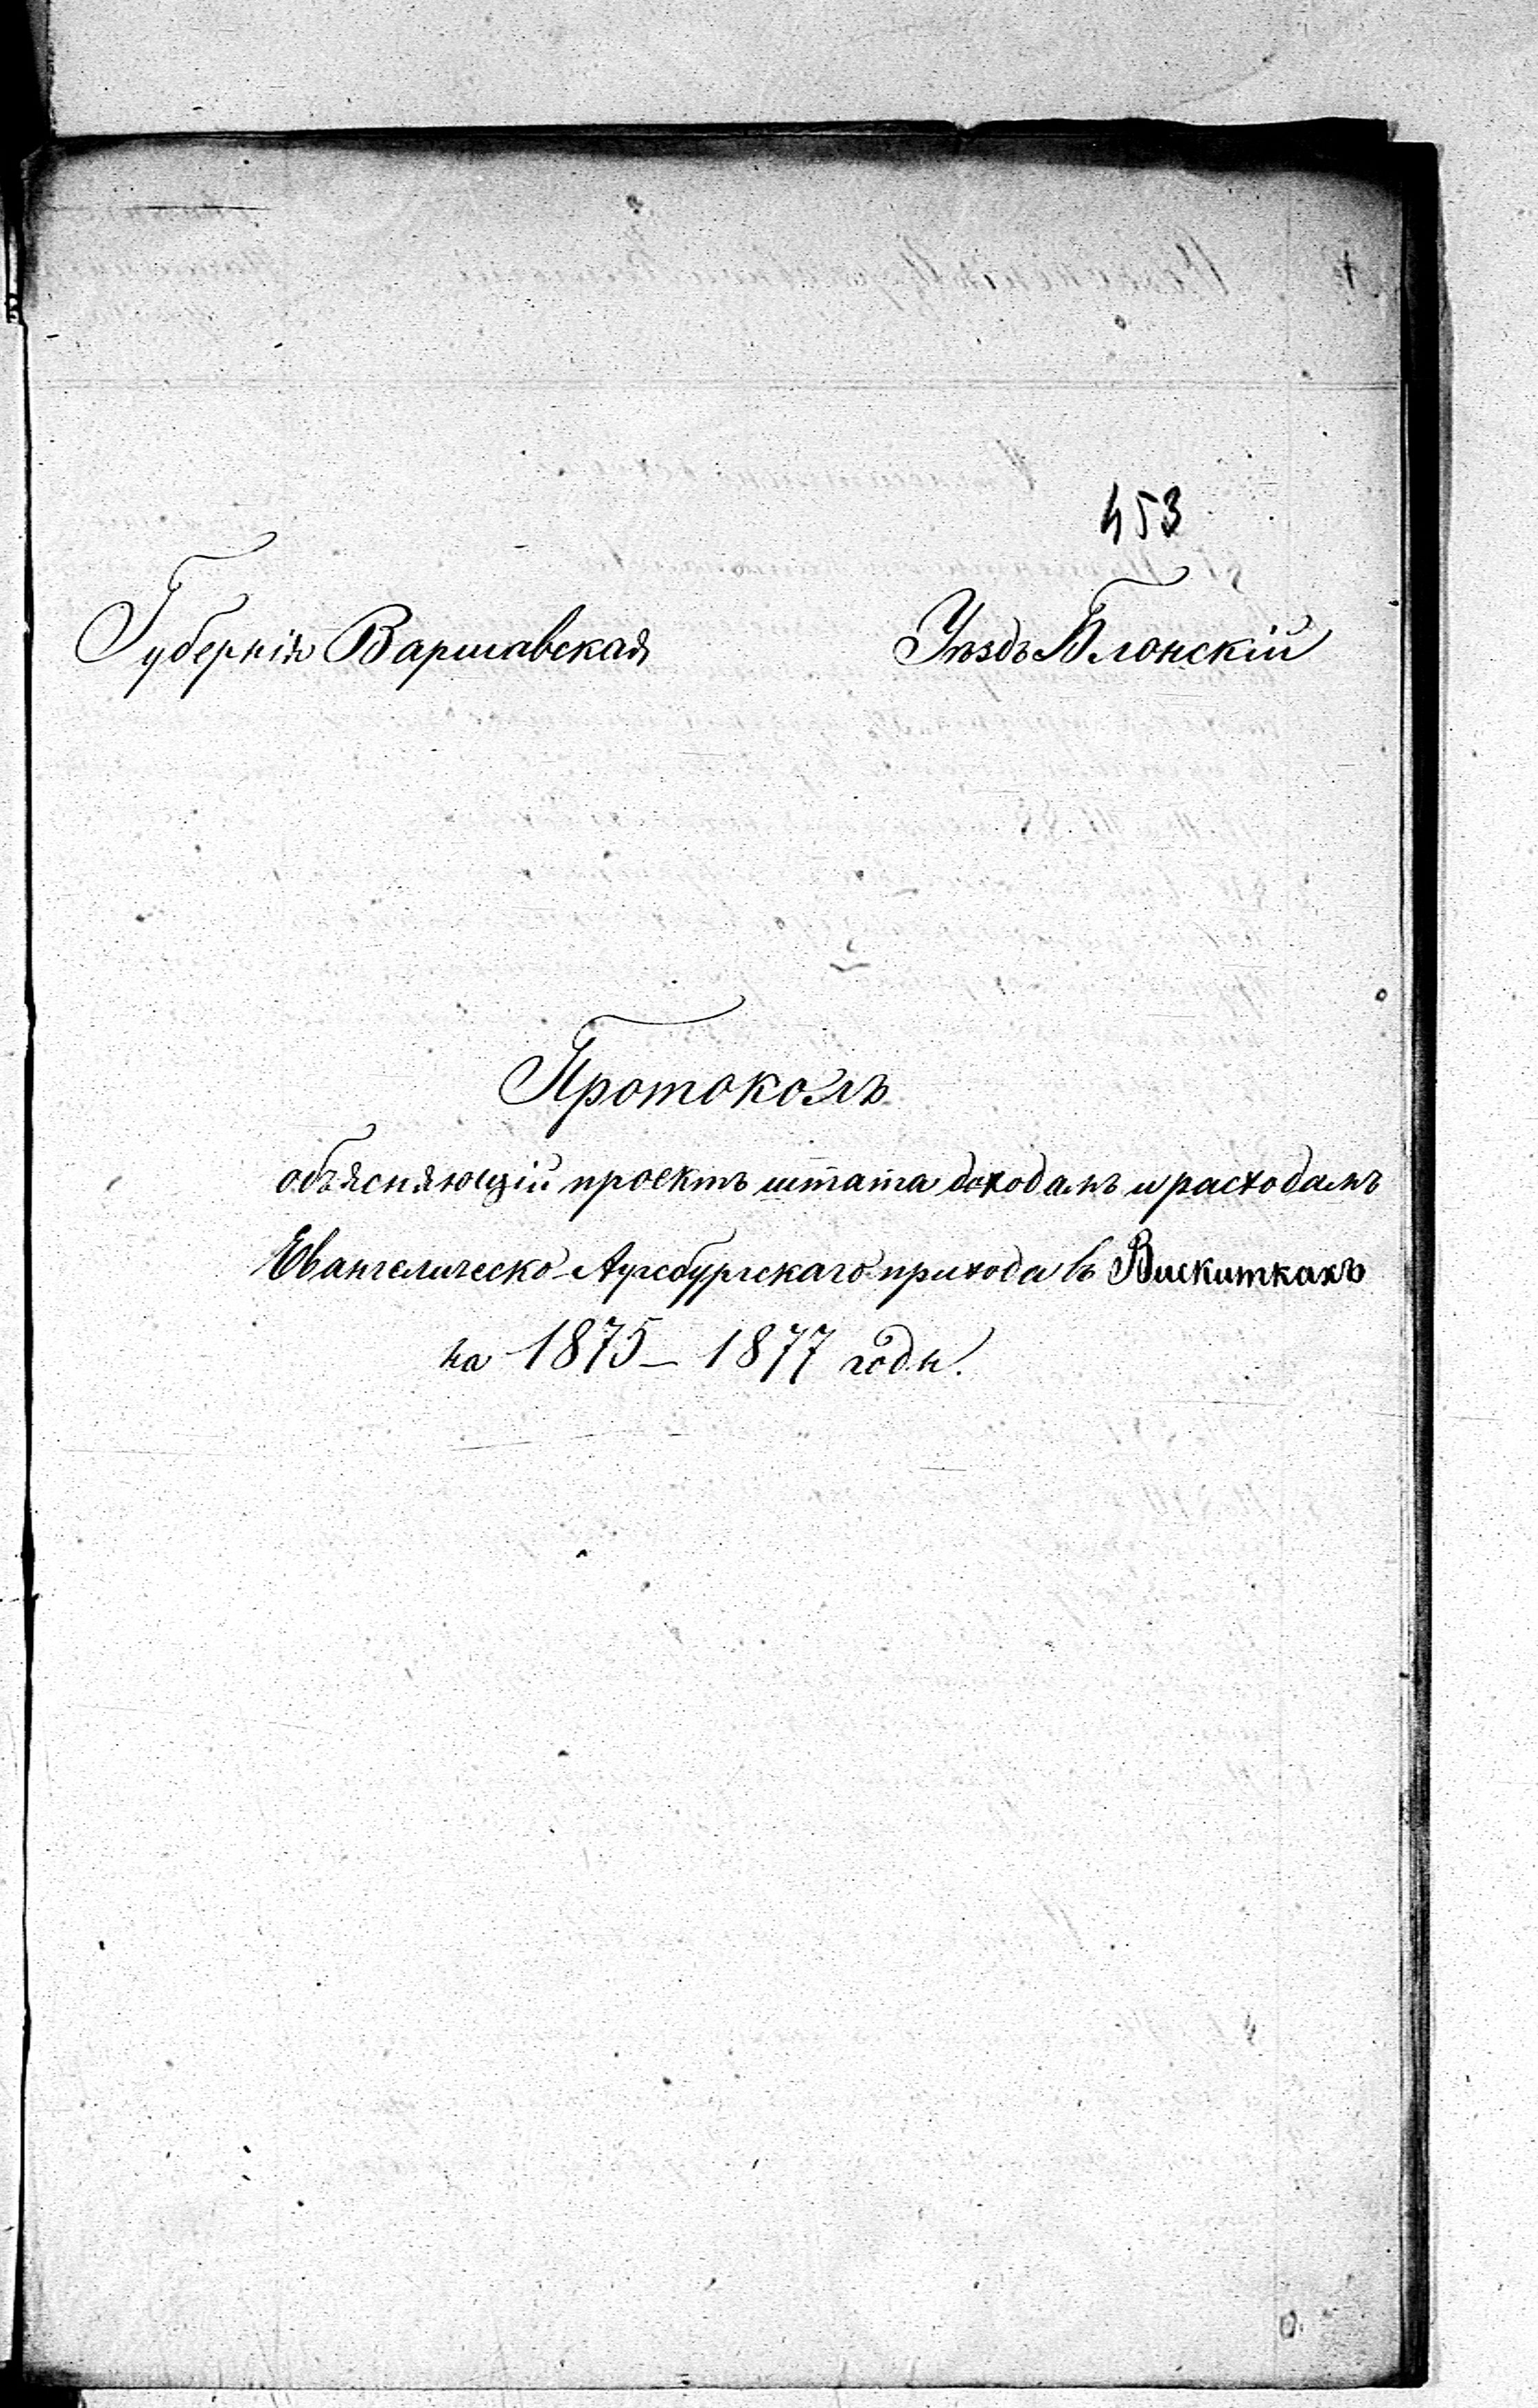 453
Губернія Варшавская Уѣздъ Блонскій
Протоколъ
объясняющій проектъ штата доходамъ и расходамъ
Евангелическо-Аугсбургскаго прихода въ Вискиткахъ
на 1875–1877 годы.